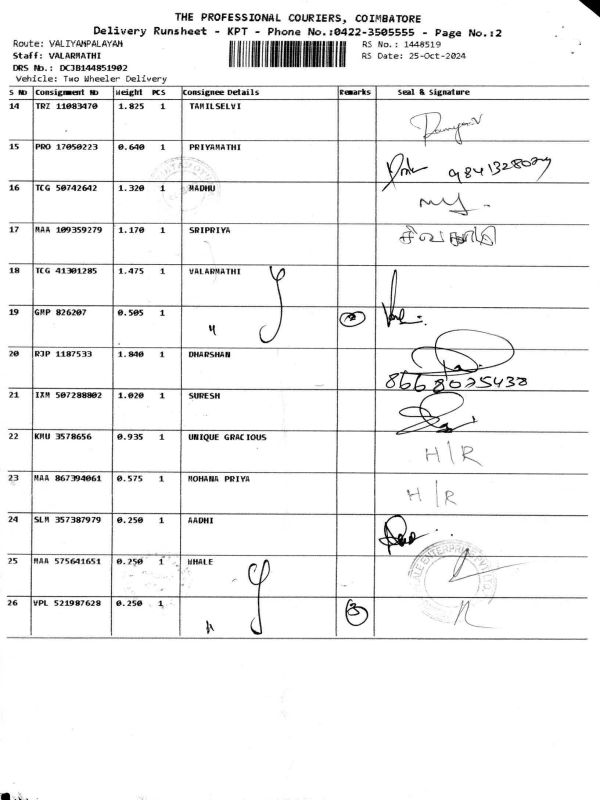 THE PROFESSIONAL COURIERS, COIMBATORE
Delivery Runsheet - KPT - Phone No.:0422-3505555 - Page No.:2
Route: VALIYAMPALAYAM RS No.: 1448519
Staff: VALARMATHI RS Date: 25-Oct-2024
DRS No.: DCJB144851902
Vehicle: Two Wheeler Delivery
S No Consignment No Weight PCS Consignee Details Remarks Seal & Signature
14 TRZ 11083470 1.825 1 TAMILSELVI
15 PRO 17050223 0.640 1 PRIYAMATHI
9841328029
16 TCG 50742642 1.320 1 MADHU
17 MAA 109359279 1.170 1 SRIPRIYA
18 TCG 41301285 1.475 1 VALARMATHI
19 GMP 826207 0.505 1 "
20 RJP 1187533 1.840 1 DHARSHAN
8668025438
21 IXM 507288802 1.020 1 SURESH
22 KMU 3578656 0.935 1 UNIQUE GRACIOUS H/R
23 MAA 867394061 0.575 1 MOHANA PRIYA H/R
24 SLM 357387979 0.250 1 AADHI
25 MAA 575641651 0.250 1 WHALE
26 VPL 521987628 0.250 1 " 3